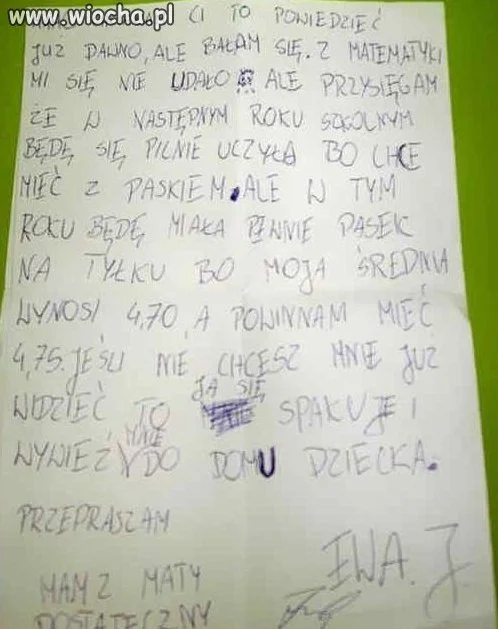 www.wiocha.pl
CI TO POWIEDZIEĆ
JUŻ DAWNO, ALE BAŁAM SIĘ. Z MATEMATYKI
MI SIĘ NIE UDAŁO ALE PRZYSIĘGAM
ŻE W NASTĘPNYM ROKU SZKOLNYM
BĘDĘ SIĘ PILNIE UCZYŁA BO CHCE
MIEĆ Z PASKIEM. ALE W TYM
ROKU BĘDĘ MIAŁA PEWNIE PASEK
NA TYŁKU BO MOJA ŚREDNIA
WYNOSI 4,70 A POWINNAM MIEĆ
4,75. JEŚLI NIE CHCESZ MNIE JUŻ
JA SIĘ
WIDZIEĆ TO SPAKUJE I
MNIE
WYWIEŹ V DO DOMU DZIECKA.
PRZEPRASZAM
EWA. J.
MAM Z MATY
DOSTATECZNY